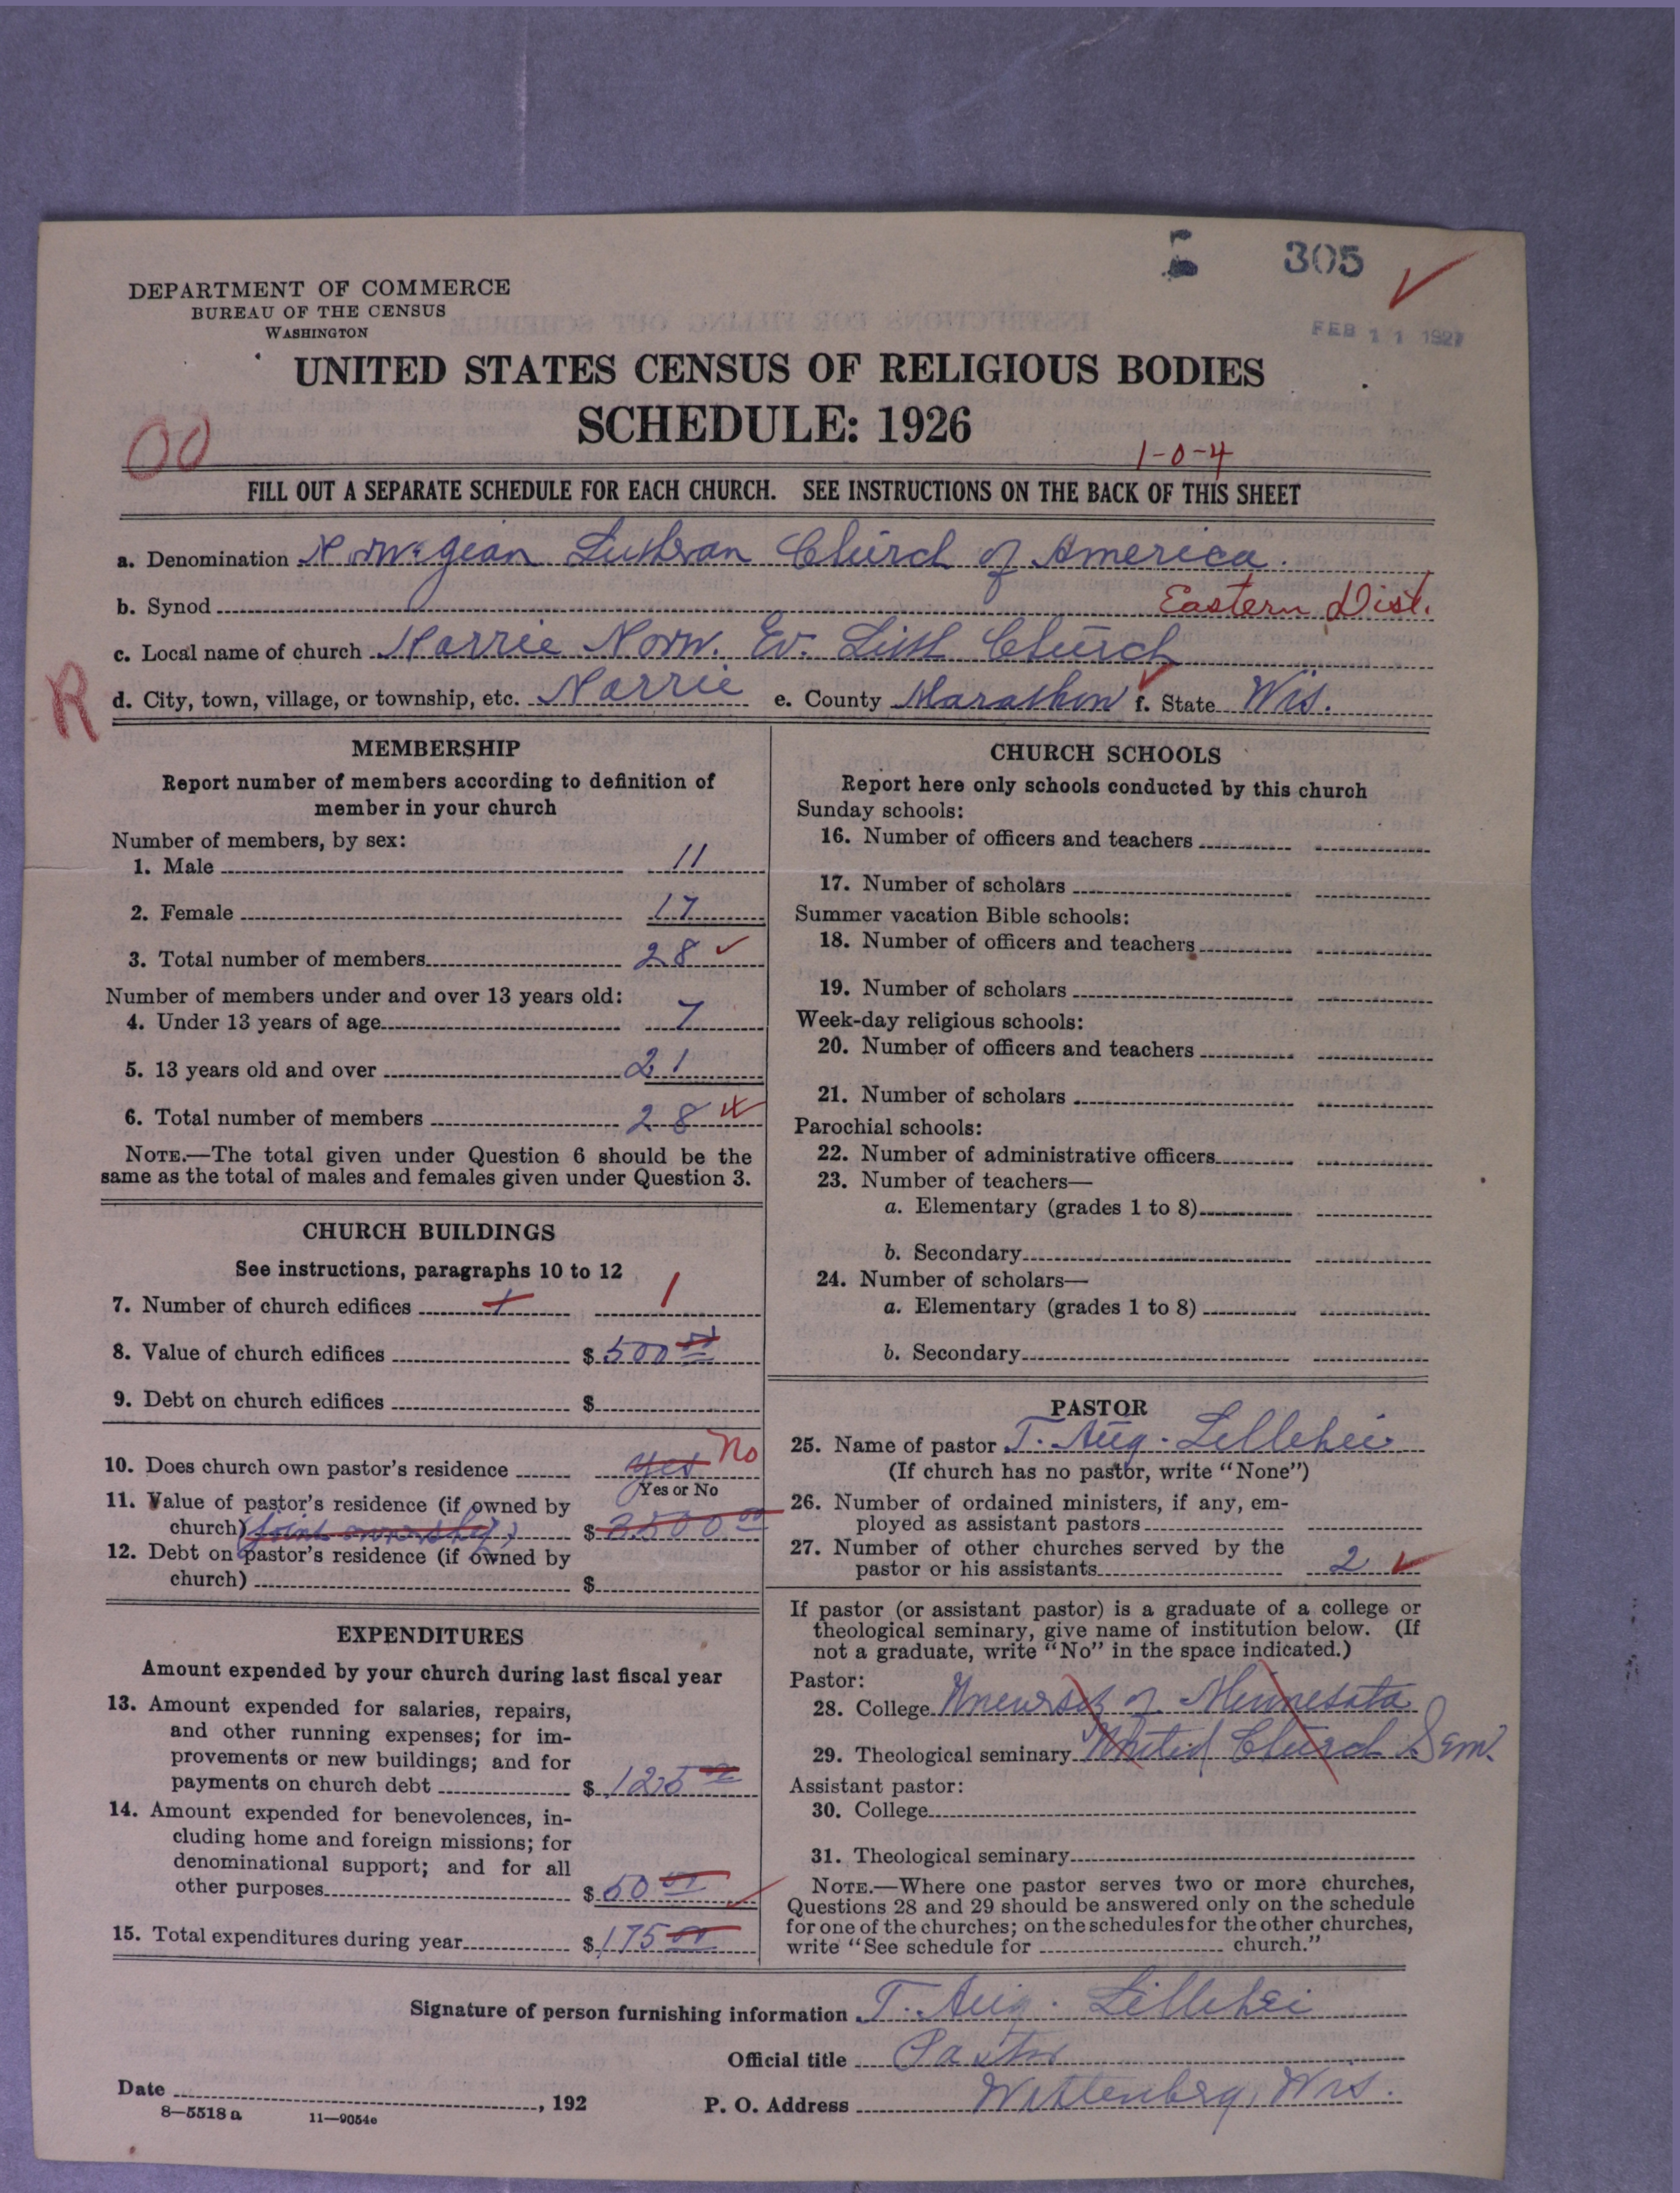 305
FEB 11 1927
DEPARTMENT OF COMMERCE
BUREAU OF THE CENSUS
WASHINGTON
UNITED STATES CENSUS OF RELIGIOUS BODIES
SCHEDULE: 1926
00
1-0-4
FILL OUT A SEPARATE SCHEDULE FOR EACH CHURCH. SEE INSTRUCTIONS ON THE BACK OF THIS SHEET
a. Denomination Norwegian Lutheran Church of America.
b. Synod Eastern Dist.
c. Local name of church Norrie Norw. Ev. Luth Church
R
d. City, town, village, or township, etc. Norrie e. County Marathon f. State Wis.
MEMBERSHIP
Report number of members according to definition of
member in your church
Number of members, by sex:
1. Male 11
2. Female 17
3. Total number of members 28
Number of members under and over 13 years old:
4. Under 13 years of age 7
5. 13 years old and over 21
6. Total number of members 28
NOTE.—The total given under Question 6 should be the
same as the total of males and females given under Question 3.
CHURCH BUILDINGS
See instructions, paragraphs 10 to 12
7. Number of church edifices 1 1
8. Value of church edifices $ 500 00
9. Debt on church edifices $
10. Does church own pastor's residence yes No
Yes or No
11. Value of pastor's residence (if owned by
church) (joint ownership) $ 3500 00
12. Debt on pastor's residence (if owned by
church) $
EXPENDITURES
Amount expended by your church during last fiscal year
13. Amount expended for salaries, repairs,
and other running expenses; for im-
provements or new buildings; and for
payments on church debt $ 125 00
14. Amount expended for benevolences, in-
cluding home and foreign missions; for
denominational support; and for all
other purposes $ 50 00
15. Total expenditures during year $ 175 00
CHURCH SCHOOLS
Report here only schools conducted by this church
Sunday schools:
16. Number of officers and teachers
17. Number of scholars
Summer vacation Bible schools:
18. Number of officers and teachers
19. Number of scholars
Week-day religious schools:
20. Number of officers and teachers
21. Number of scholars
Parochial schools:
22. Number of administrative officers
23. Number of teachers—
a. Elementary (grades 1 to 8)
b. Secondary
24. Number of scholars—
a. Elementary (grades 1 to 8)
b. Secondary
PASTOR
25. Name of pastor T. Aug. Lillehei
(If church has no pastor, write "None")
26. Number of ordained ministers, if any, em-
ployed as assistant pastors
27. Number of other churches served by the
pastor or his assistants 2
If pastor (or assistant pastor) is a graduate of a college or
theological seminary, give name of institution below. (If
not a graduate, write "No" in the space indicated.)
Pastor:
28. College University of Minnesota
29. Theological seminary United Church Sem.
Assistant pastor:
30. College
31. Theological seminary
NOTE.—Where one pastor serves two or more churches,
Questions 28 and 29 should be answered only on the schedule
for one of the churches; on the schedules for the other churches,
write "See schedule for church."
Signature of person furnishing information T. Aug. Lillehei
Official title Pastor
Date , 192
P. O. Address Wittenberg, Wis.
8—5518 a 11—9054e